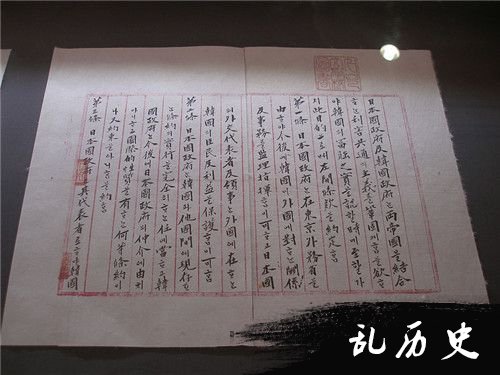 日本國政府及韓國政府는兩帝國을結合
ᄒᆞ는利害共通의主義를鞏固케ᄒᆞᆷ을欲ᄒᆞ
야韓國의富强之實을認ᄒᆞᆯ時에至ᄒᆞᆯ가
지此目的으로써左開條款을約定ᄒᆞᆷ
第一條 日本國政府는在東京外務省을
由ᄒᆞ야今後에韓國이外國에對ᄒᆞ는關係
及事務를監理指揮ᄒᆞᆷ이可ᄒᆞ고日本國
의外交代表者及領事는外國에在ᄒᆞ는
韓國의臣民及利益을保護ᄒᆞᆷ이可ᄒᆞᆷ
第二條 日本國政府는韓國과他國間에現存ᄒᆞ
는條約의實行을完全히ᄒᆞ는任에當ᄒᆞ고韓
國政府는今後에日本國政府의仲介에由치
아니ᄒᆞ고國際的性質을有ᄒᆞ는何等條約이
나又約束을아니ᄒᆞᆷ을約ᄒᆞᆷ
第三條 日本國政府는其代表者로ᄒᆞ야韓國
乱历史